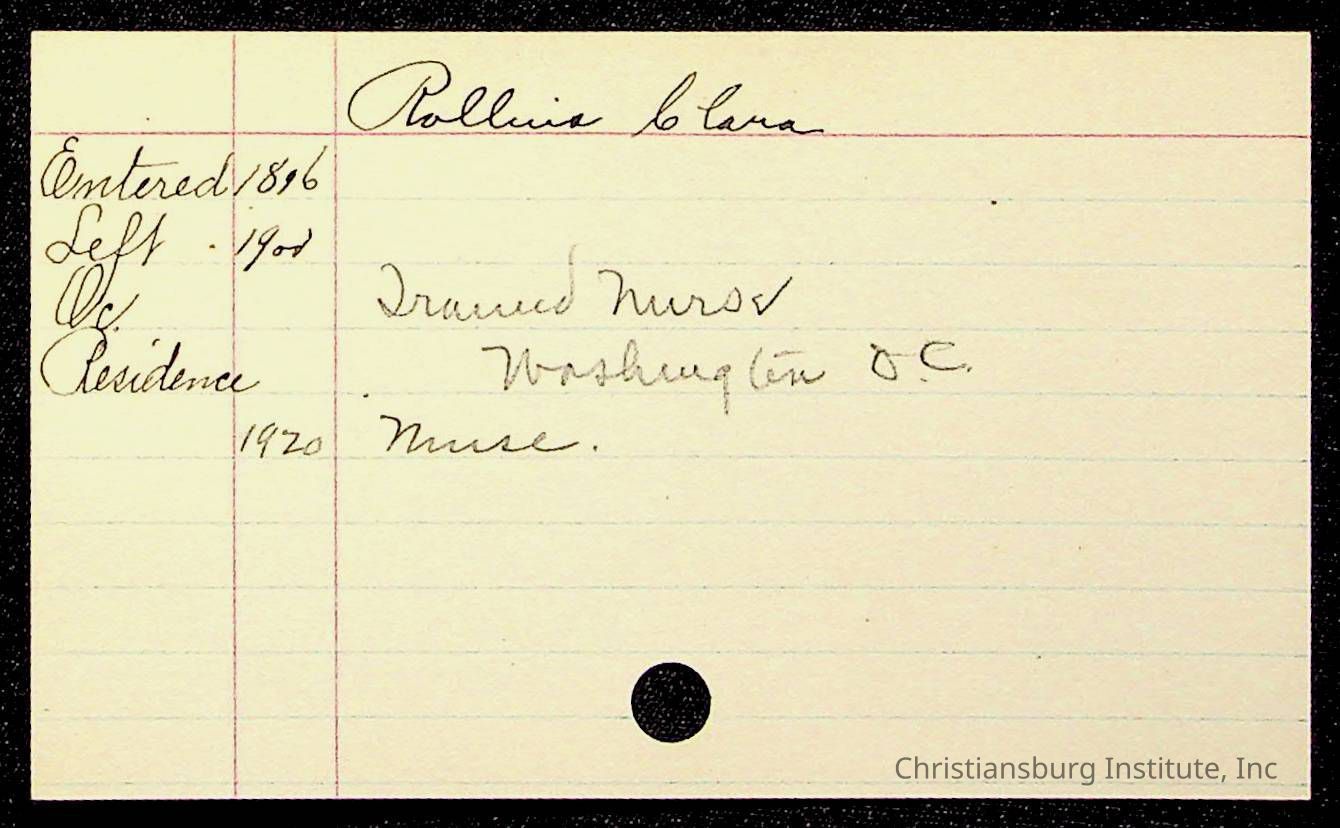 Rollins Clara
Entered 1896
Left 1900
Oc. Trained Nurse
Residence Washington D.C.
1920 Nurse.
Christiansburg Institute, Inc